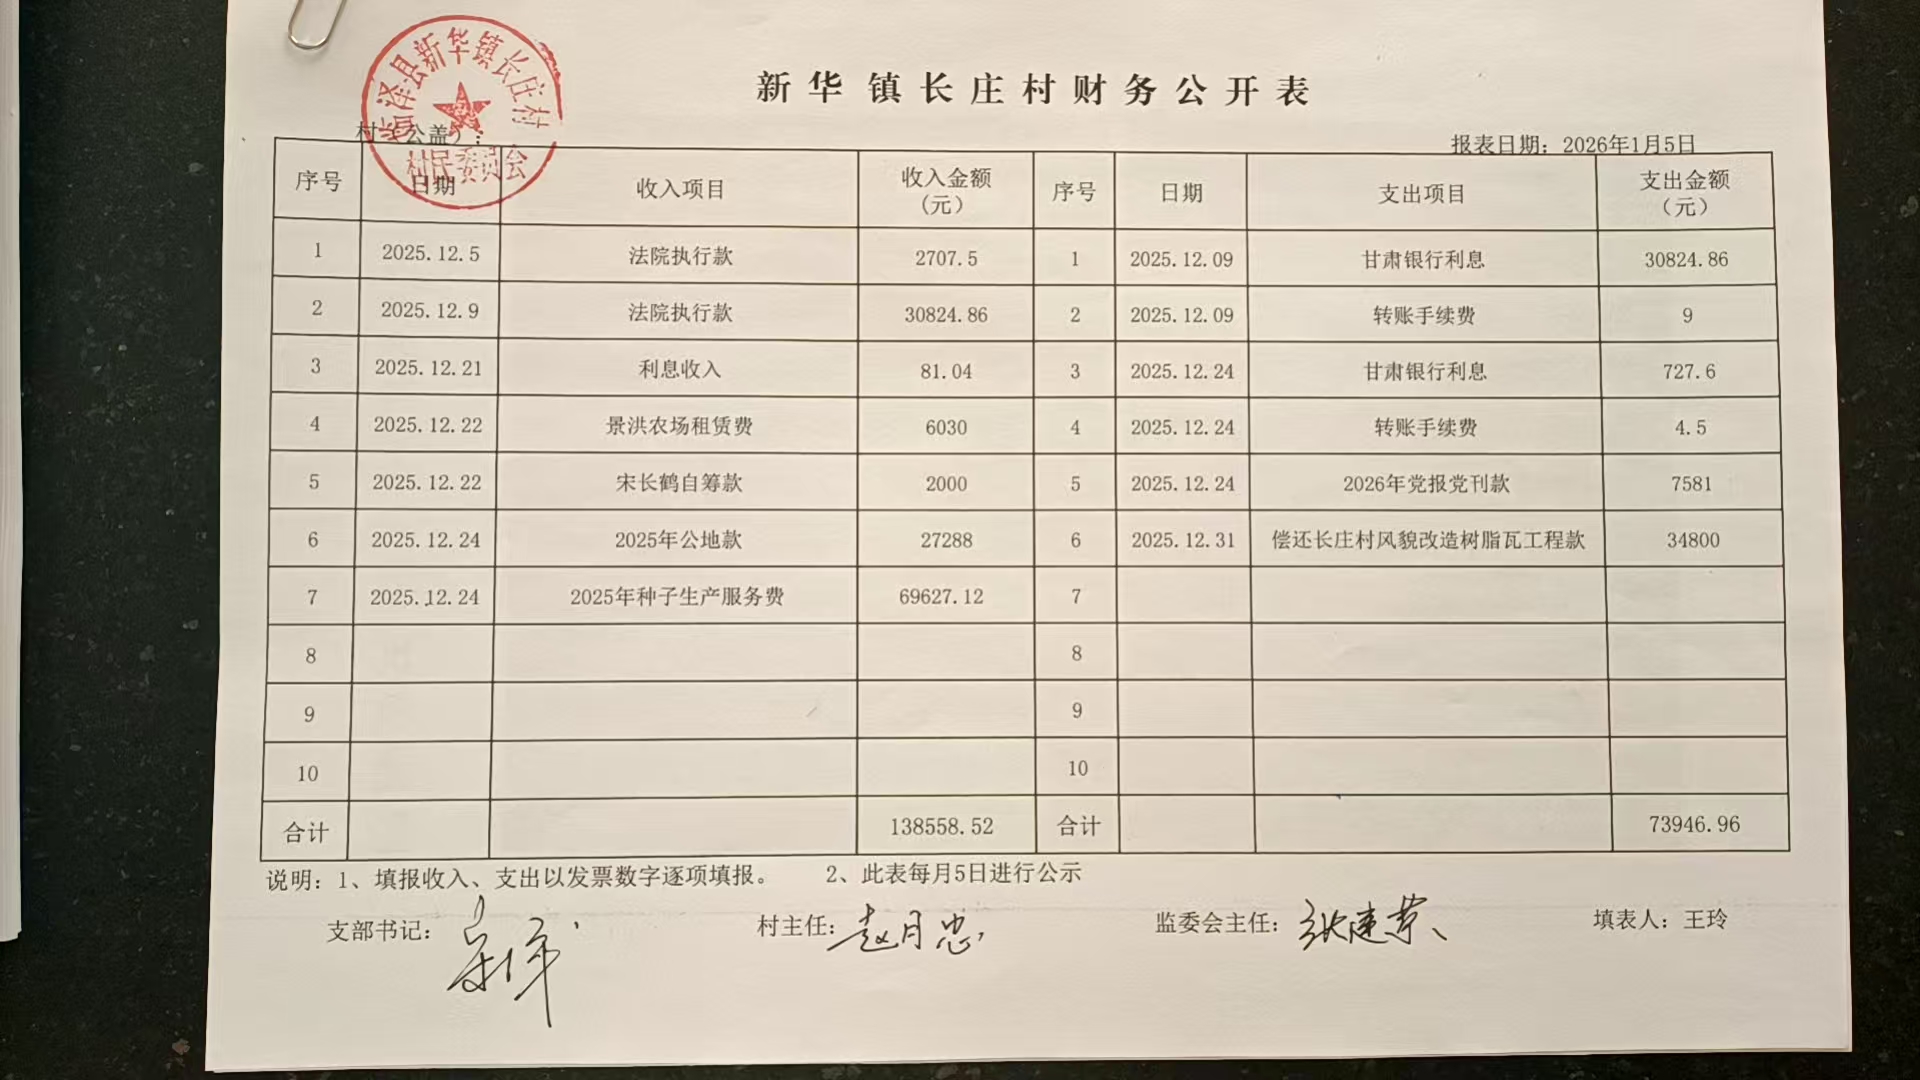 新华镇长庄村财务公开表
临泽县新华镇长庄村
村民委员会
村（公盖）：
报表日期：2026年1月5日
序号 日期 收入项目 收入金额（元） 序号 日期 支出项目 支出金额（元）
1 2025.12.5 法院执行款 2707.5 1 2025.12.09 甘肃银行利息 30824.86
2 2025.12.9 法院执行款 30824.86 2 2025.12.09 转账手续费 9
3 2025.12.21 利息收入 81.04 3 2025.12.24 甘肃银行利息 727.6
4 2025.12.22 景洪农场租赁费 6030 4 2025.12.24 转账手续费 4.5
5 2025.12.22 宋长鹤自筹款 2000 5 2025.12.24 2026年党报党刊款 7581
6 2025.12.24 2025年公地款 27288 6 2025.12.31 偿还长庄村风貌改造树脂瓦工程款 34800
7 2025.12.24 2025年种子生产服务费 69627.12 7
8 8
9 9
10 10
合计 138558.52 合计 73946.96
说明：1、填报收入、支出以发票数字逐项填报。 2、此表每月5日进行公示
支部书记： 村主任：赵月忠 监委会主任：张建荣 填表人：王玲